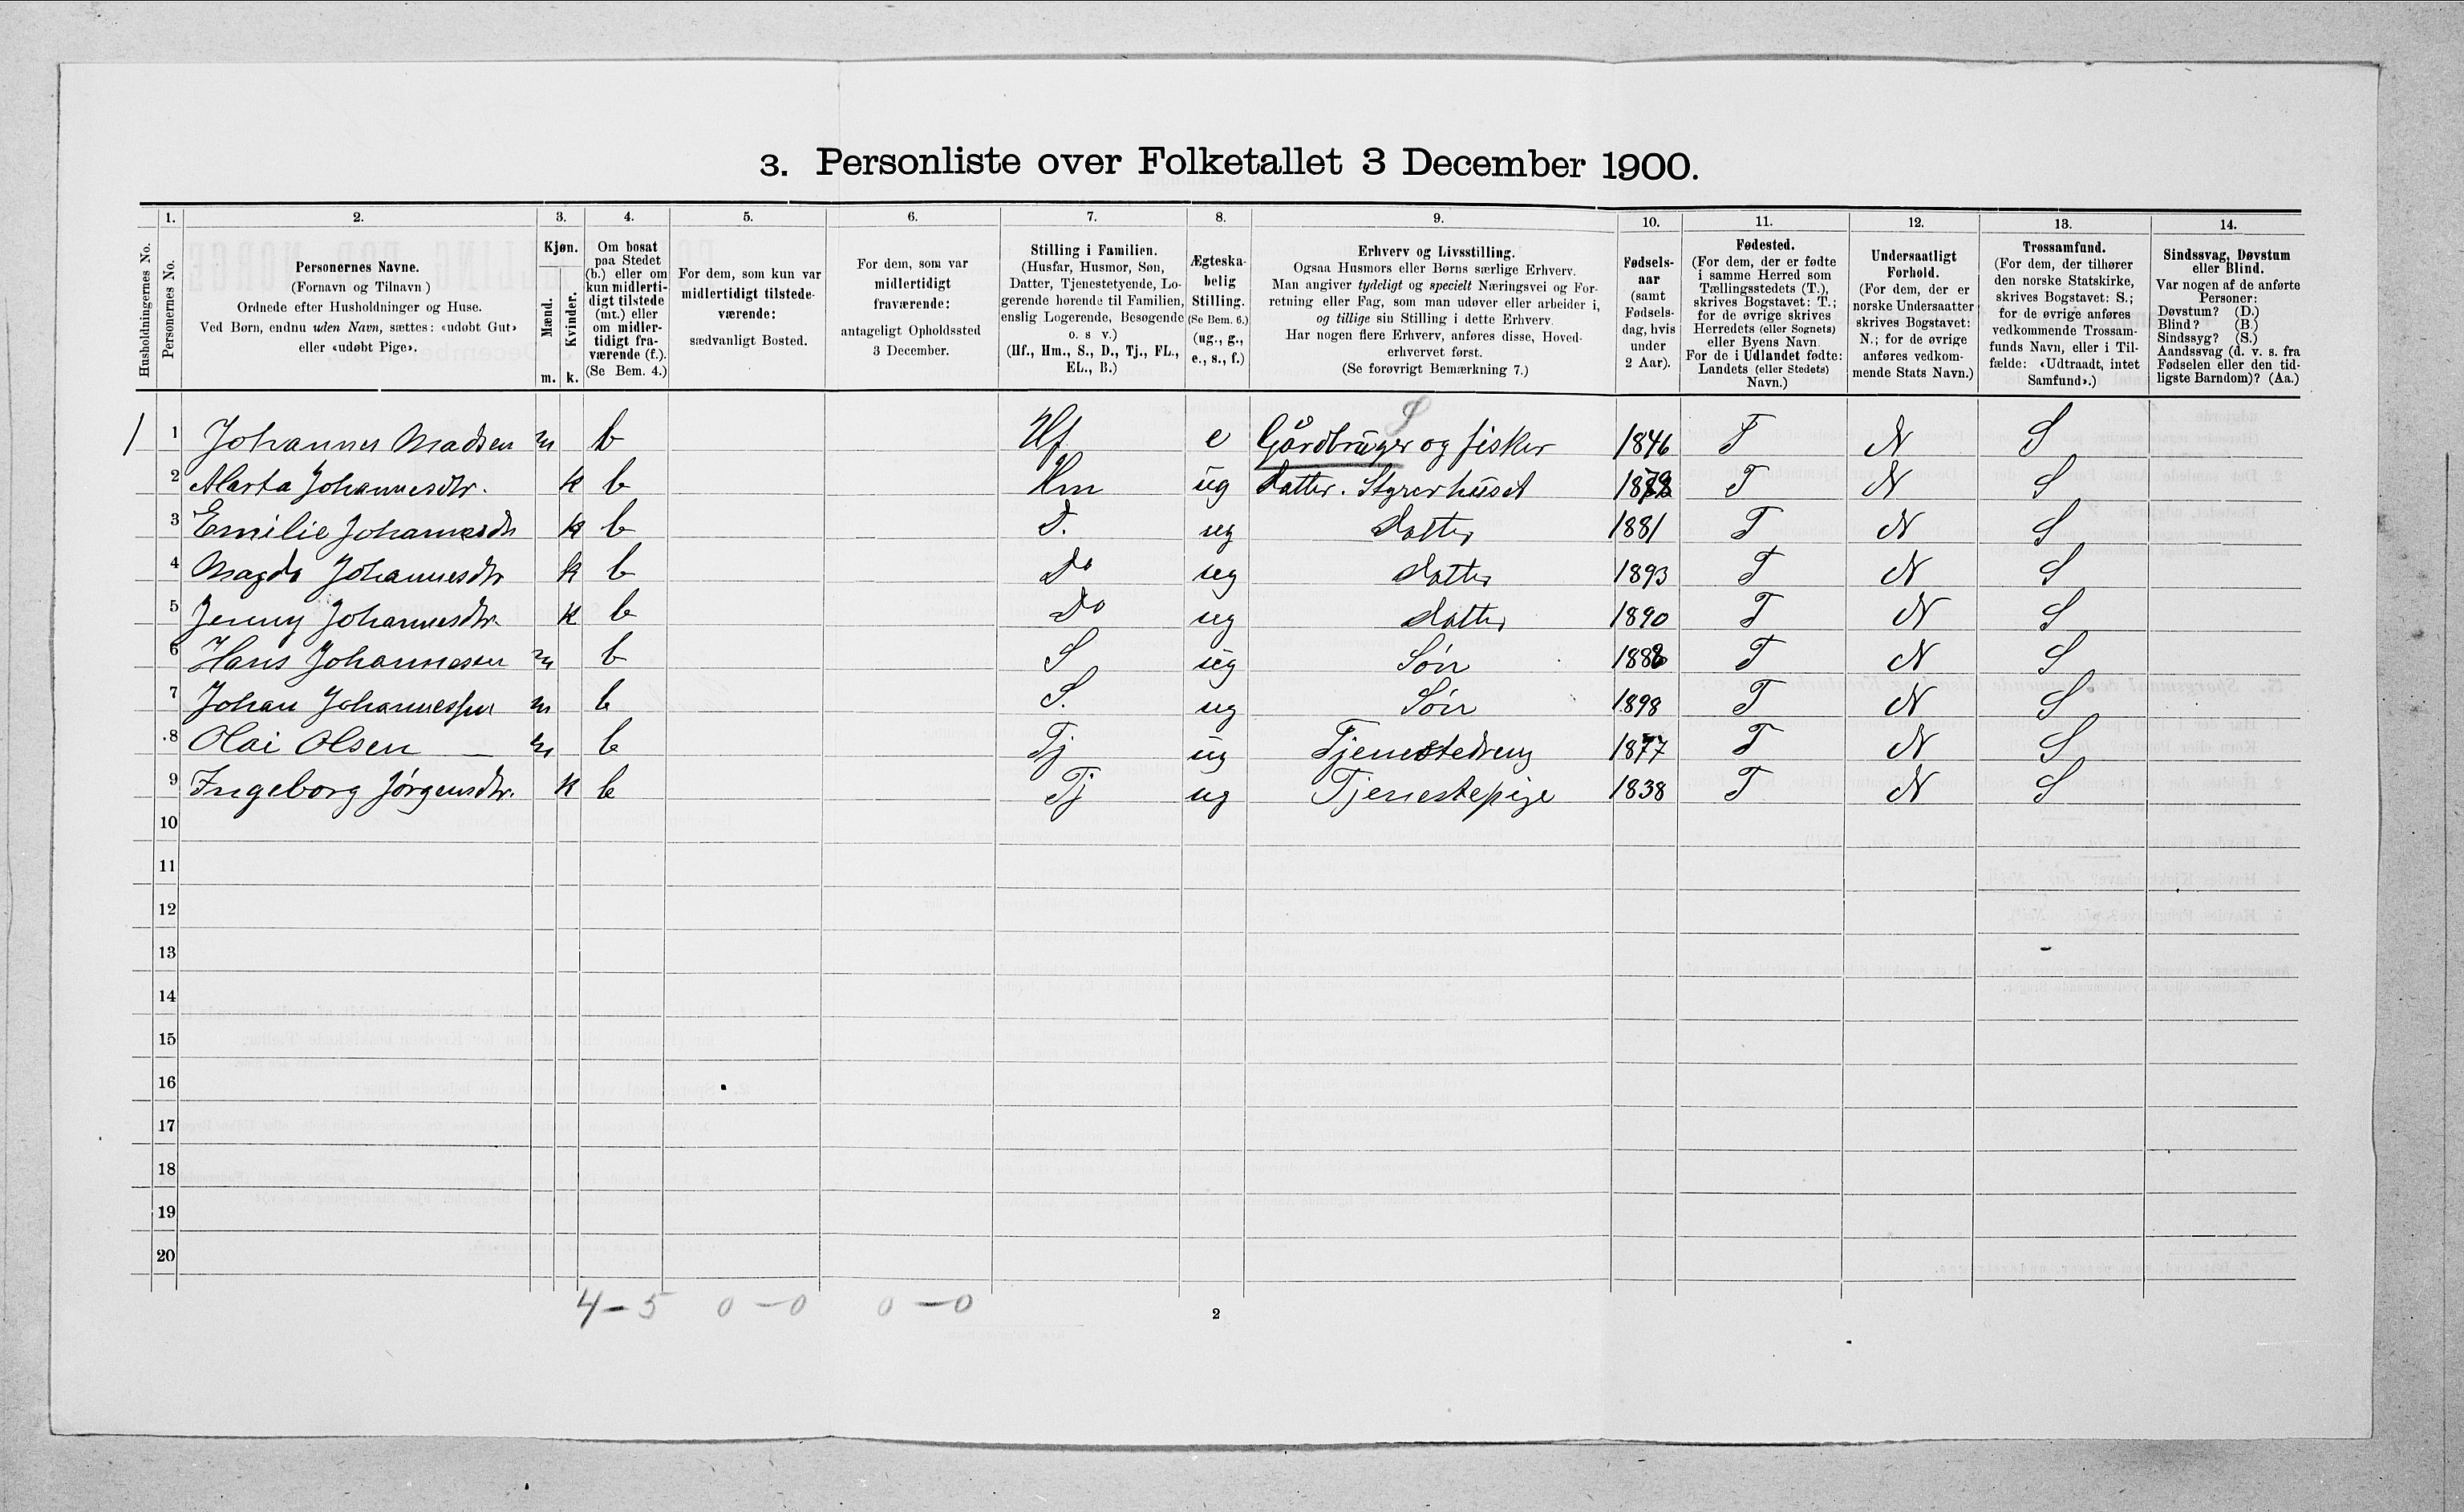 3. Personliste over Folketallet 3 December 1900.
Husholdningernes No.
1.
Personernes No.
2.
Personernes Navne.
(Fornavn og Tilnavn)
Ordnede efter Husholdninger og Huse.
Ved Børn, endnu uden Navn, sættes: «udøbt Gut»
eller «udøbt Pige».
3.
Kjøn.
Mænd.
Kvinder.
m. k.
4.
Om bosat
paa Stedet
(b.) eller om
kun midlerti-
digt tilstede
(mt.) eller
om midler-
tidigt fra-
værende (f.).
(Se Bem. 4.)
5.
For dem, som kun var
midlertidigt tilstede-
værende:
sædvanligt Bosted.
6.
For dem, som var
midlertidigt
fraværende:
antageligt Opholdssted
3 December.
7.
Stilling i Familien.
(Husfar, Husmor, Søn,
Datter, Tjenestetyende, Lo-
gerende hørende til Familien,
enslig Logerende, Besøgende
o. s v.)
(Hf., Hm., S., D., Tj., FL.,
EL., B.)
8.
Ægteska-
belig
Stilling.
(Se Bem. 6.)
(ug., g.,
e., s., f.)
9.
Erhverv og Livsstilling.
Ogsaa Husmors eller Børns særlige Erhverv.
Man angiver tydeligt og specielt Næringsvei og For-
retning eller Fag, som man udøver eller arbeider i,
og tillige sin Stilling i dette Erhverv.
Har nogen flere Erhverv, anføres disse, Hoved-
erhvervet først.
(Se forøvrigt Bemærkning 7.)
10.
Fødsels-
aar
(samt
Fødsels-
dag, hvis
under
2 Aar).
11.
Fødested.
(For dem, der er fødte
i samme Herred som
Tællingsstedets (T.),
skrives Bogstavet: T.;
for de øvrige skrives
Herredets (eller Sognets)
eller Byens Navn
For de i Udlandet fødte:
Landets (eller Stedets)
Navn.)
12.
Undersaatligt
Forhold.
(For dem, der er
norske Undersaatter
skrives Bogstavet:
N.; for de øvrige
anføres vedkom-
mende Stats Navn.)
13.
Trossamfund.
(For dem, der tilhører
den norske Statskirke,
skrives Bogstavet: S.;
for de øvrige anføres
vedkommende Trossam-
funds Navn, eller i Til-
fælde: «Udtraadt, intet
Samfund».)
14.
Sindssvag, Døvstum
eller Blind.
Var nogen af de anførte
Personer:
Døvstum? (D.)
Blind? (B.)
Sindssyg? (S.)
Aandssvag (d. v. s. fra
Fødselen eller den tid-
ligste Barndom)? (Aa.)
S
1 1 Johannes Madsen m b Hf e Gårdbruger og fisker 1846 T N S
2 Marta Johannesdtr. k b Hm ug datter. Styrer huset T N S
3 Emilie Johannesdtr k b D. ug datter 1881 T N S
4 Magda Johannesdtr k b Do ug datter 1893 T N S
5 Jenny Johannesdtr. k b Do ug datter 1890 T N S
6 Hans Johannessen m b S ug Søn T N S
7 Johan Johannessen m b S. ug Søn 1898 T N S
8 Olai Olsen m b Tj ug Tjenestedreng 1877 T N S
9 Ingeborg Jørgensdtr. k b Tj ug Tjenestepige 1838 T N S
10
11
12
13
14
15
16
17
18
19
20
4 – 5 0 – 0 0 – 0
2